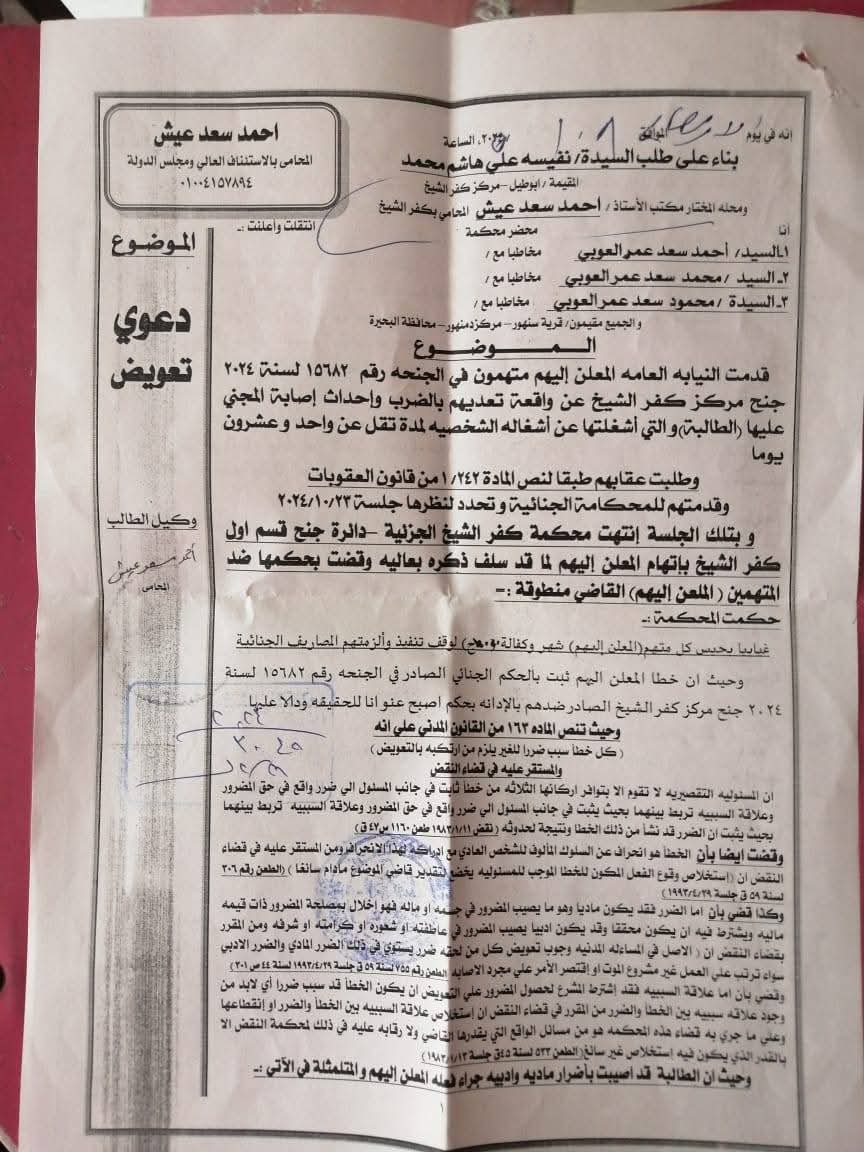 احمد سعد عيش
المحامى بالاستئناف العالي ومجلس الدولة
٠١٠٠٤١٥٧٨٩٤
إنه في يوم الموافق ٢٠٢٥، الساعة
بناء على طلب السيدة/ نفيسه علي هاشم محمد
المقيمة / ابوطيل – مركز كفر الشيخ
ومحله المختار مكتب الأستاذ / أحمد سعد عيش المحامي بكفر الشيخ
أنا محضر محكمة انتقلت وأعلنت :ـ
١ـ السيد/ أحمد سعد عمر العوبي مخاطبا مع /
٢ـ السيد /محمد سعد عمر العوبي مخاطبا مع /
٣ـ السيدة /محمود سعد عمر العوبي مخاطبا مع /
و الجميع مقيمون/ قرية سنهور – مركز دمنهور – محافظة البحيرة
الموضوع
دعوي
تعويض
وكيل الطالب
أحمد سعد عيش
المحامى
المـــــوضـــــوع
قدمت النيابه العامه المعلن إليهم متهمون في الجنحه رقم ١٥٦٨٢ لسنة ٢٠٢٤
جنح مركز كفر الشيخ عن واقعة تعديهم بالضرب وإحداث إصابة المجني
عليها (الطالبة) و التي أشغلتها عن أشغاله الشخصيه لمدة تقل عن واحد و عشرون
يوما
وطلبت عقابهم طبقا لنص المادة ١/٢٤٢ من قانون العقوبات
وقدمتهم للمحكامة الجنائية و تحدد لنظرها جلسة ٢٠٢٤/١٠/٢٣
و بتلك الجلسة إنتهت محكمة كفر الشيخ الجزئية –دائرة جنح قسم اول
كفر الشيخ بإتهام المعلن إليهم لما قد سلف ذكره بعاليه وقضت بحكمها ضد
المتهمين ( الملعن إليهم) القاضي منطوقة :ـ
حكمت المحكمة :ـ
غيابيا بحبس كل متهم(المعلن إليهم) شهر وكفالة لوقف تنفيذ وألزمتهم المصاريف الجنائية
وحيث ان خطا المعلن اليهم ثبت بالحكم الجنائي الصادر في الجنحه رقم ١٥٦٨٢ لسنة
٢٠٢٤ جنح مركز كفر الشيخ الصادر ضدهم بالإدانه بحكم اصبح عنوانا للحقيقه ودالا عليها
وحيث تنص الماده ١٦٣ من القانون المدني علي انه
( كل خطأ سبب ضررا للغير يلزم من ارتكبه بالتعويض )
والمستقر عليه في قضاء النقض
ان المسئوليه التقصيريه لا تقوم الا بتوافر اركانها الثلاثه من خطأ ثابت في جانب المسئول الي ضرر واقع في حق المضرور
وعلاقة السببيه تربط بينهما بحيث يثبت في جانب المسئول الي ضرر واقع في حق المضرور وعلاقة السببيه تربط بينهما
بحيث يثبت ان الضرر قد نشأ من ذلك الخطأ ونتيجة لحدوثه ( نقض ١٩٨٣/١/١١ طعن ١١٦٠ س ٤٧ ق )
وقضت إيضا بأن الخطأ هو انحراف عن السلوك المألوف للشخص العادي مع ادراكه لهذا الإنحراف ومن المستقر عليه في قضاء
النقض ان ( إستخلاص وقوع الفعل المكون للخطا الموجب للمسئوليه يخضع لتقدير قاضي الموضوع مادام سائغا ) (الطعن رقم ٣٠٦
لسنة ٥٩ ق جلسة ١٩٩٣/٤/٢٩)
وكذا قضي بأن اما الضرر فقد يكون ماديا وهو ما يصيب المضرور في جسمه او ماله فهو إخلال بمصلحة المضرور ذات قيمه
ماليه ويشترط فيه ان يكون محققا وقد يكون ادبيا يصيب المضرور في عاطفته او شعوره او كرامته او شرفه ومن المقرر
بقضاء النقض ان ( الاصل في المساءله المدنيه وجوب تعويض كل من لحقه ضرر يستوي في ذلك الضرر المادي والضرر الادبي
سواء ترتب علي العمل غير مشروع الموت او إقتصر الأمر علي مجرد الاصابه (الطعن رقم ٧٥٥ لسنة ٥٩ ق جلسة ١٩٩٣/٤/٢٩ لسنة ٤٤ ص ٣٠١)
وقضي بأن اما علاقة السببيه فقد إشترط المشرع لحصول المضرور علي التعويض ان يكون الخطأ قد سبب ضررا أي لابد من
وجود علاقه سببيه بين الخطأ والضرر من المقرر في قضاء النقض ان إستخلاص علاقة السببيه بين الخطأ والضرر او إنقطاعها
وعلي ما جري به قضاء هذه المحكمه هو من مسائل الواقع التي يقدرها القاضي ولا رقابه عليه في ذلك لمحكمة النقض الا
بالقدر الذي يكون فيه إستخلاص غير سائغ (الطعن ٥٣٣ لسنة ٤٥ ق جلسة ١٩٨٣/١/١٣)
وحيث ان الطالبة قد اصيبت بأضرار ماديه وادبيه جراء فعله المعلن إليهم و المتلمثلة في الآتي :ـ
١